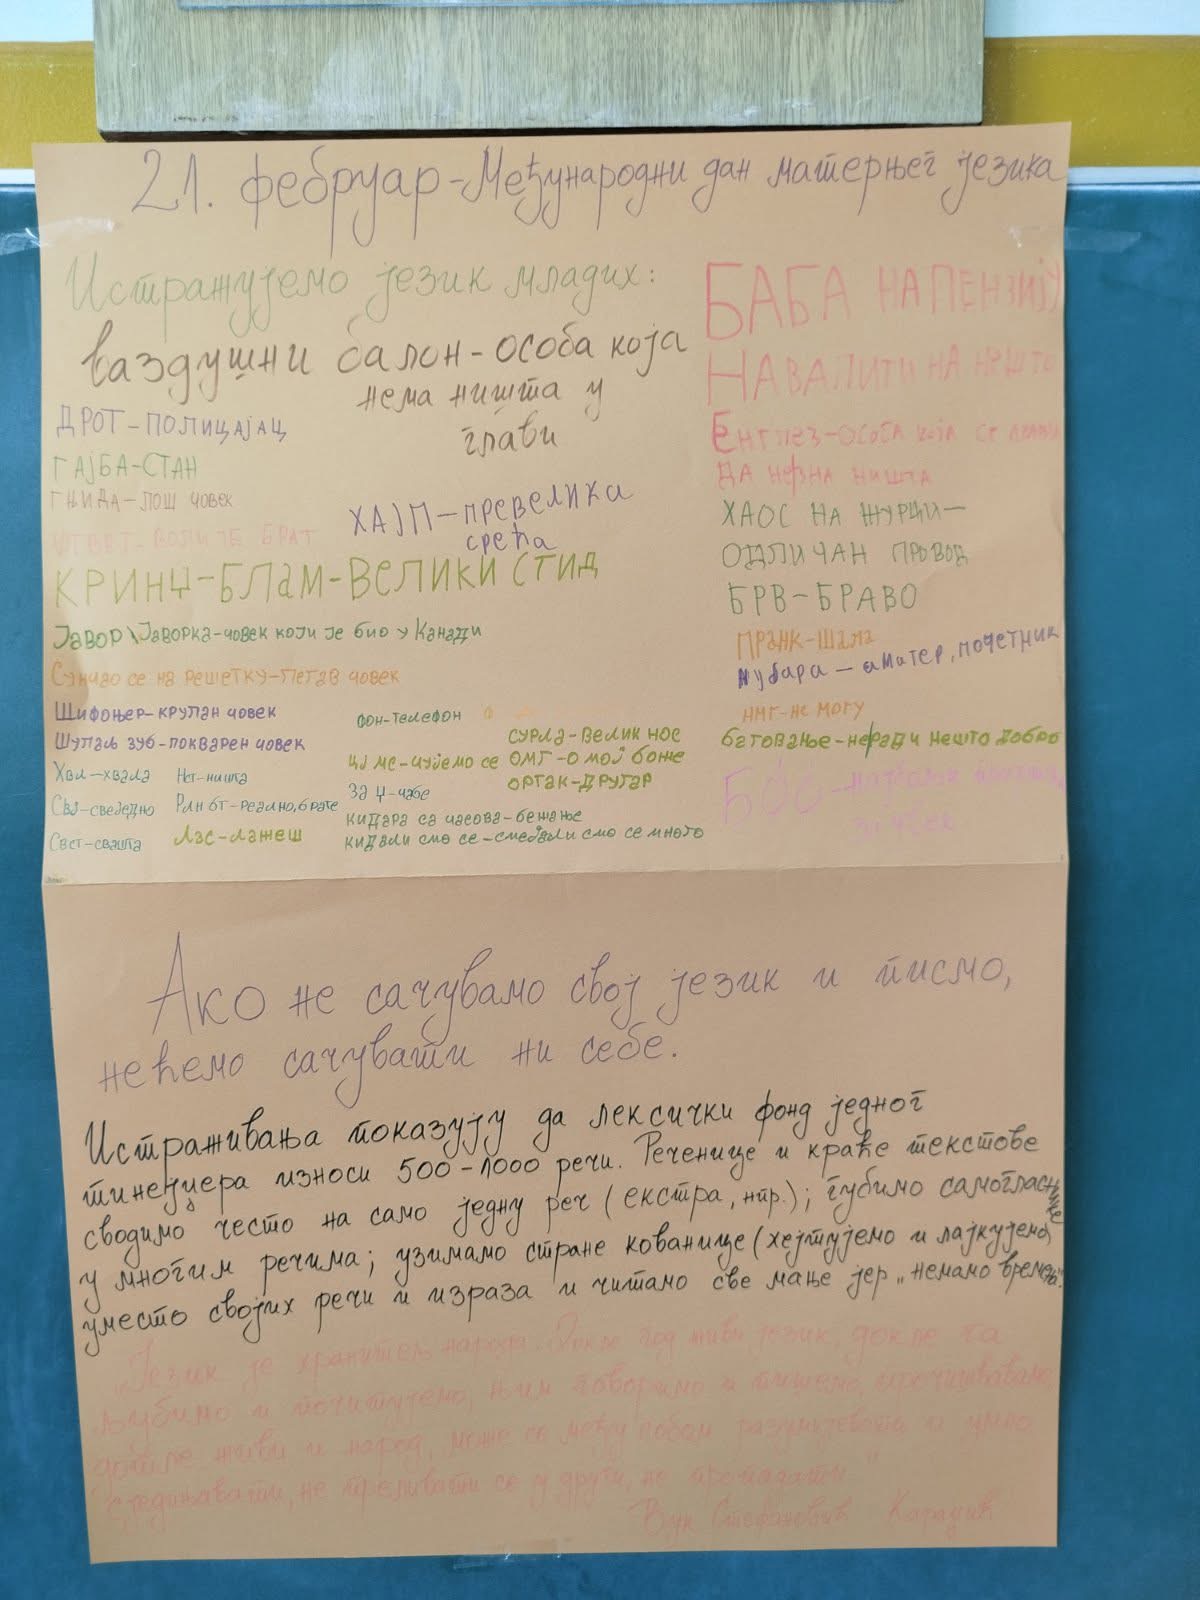 21. фебруар-Међународни дан матерњег језика
Истражујемо језик младих:
ваздушни балон-особа која
нема ништа у
глави
ДРОТ-ПОЛИЦАЈАЦ
ГАЈБА-СТАН
ГЊИДА-ЛОШ ЧОВЕК
ВОЛИ ТЕ БРАТ
ХАЈП-ПРЕВЕЛИКА
СРЕЋА
КРИНЏ-БЛАМ-ВЕЛИКИ СТИД
ЈАВОР\ЈАВОРКА-човек који је био у Канади
Сунчао се на решетку-пегав човек
Шифоњер-крупан човек
Шупаљ зуб-покварен човек
Хвл-хвала
Свј-свеједно
Свст-свашта
Нст-ништа
Рлн бт-реално, брате
Лжс-лажеш
фон-телефон
цј мс-чујемо се
За Џ-џабе
кидара са часова-бежање
кидали смо се-смејали смо се много
СУРЛА-ВЕЛИК НОС
ОМГ-О МОЈ БОЖЕ
ОРТАК-ДРУГАР
БАБА НА ПЕНЗИЈУ
НАВАЛИТИ НА НЕШТО
ЕНГЛЕЗ-ОСОБА КОЈА СЕ ПРАВИ
ДА НЕ ЗНА НИШТА
ХАОС НА ЖУРЦИ-
ОДЛИЧАН ПРОВОД
БРВ-БРАВО
ПРАНК-ШАЛА
Нубара-аматер, почетник
НМГ-НЕ МОГУ
багтовање-неради нешто добро
Ако не сачувамо свој језик и писмо,
нећемо сачувати ни себе.
Истраживања показују да лексички фонд једног
тинејџера износи 500-1000 речи. Реченице и краће текстове
сводимо често на само једну реч (екстра, нпр.); губимо самогласнике
у многим речима; узимамо стране кованице (хејтујемо и лајкујемо)
уместо својих речи и израза и читамо све мање јер „немамо времена".
„Језик је хранитељ народа. Докле год живи језик, докле га
љубимо и почитујемо, њим говоримо и пишемо, прочишћавамо,
дотле живи и народ, може се међу собом разумијевати и умно
сједињавати, не преливати се у други, не пропадати."
Вук Стефановић Караџић